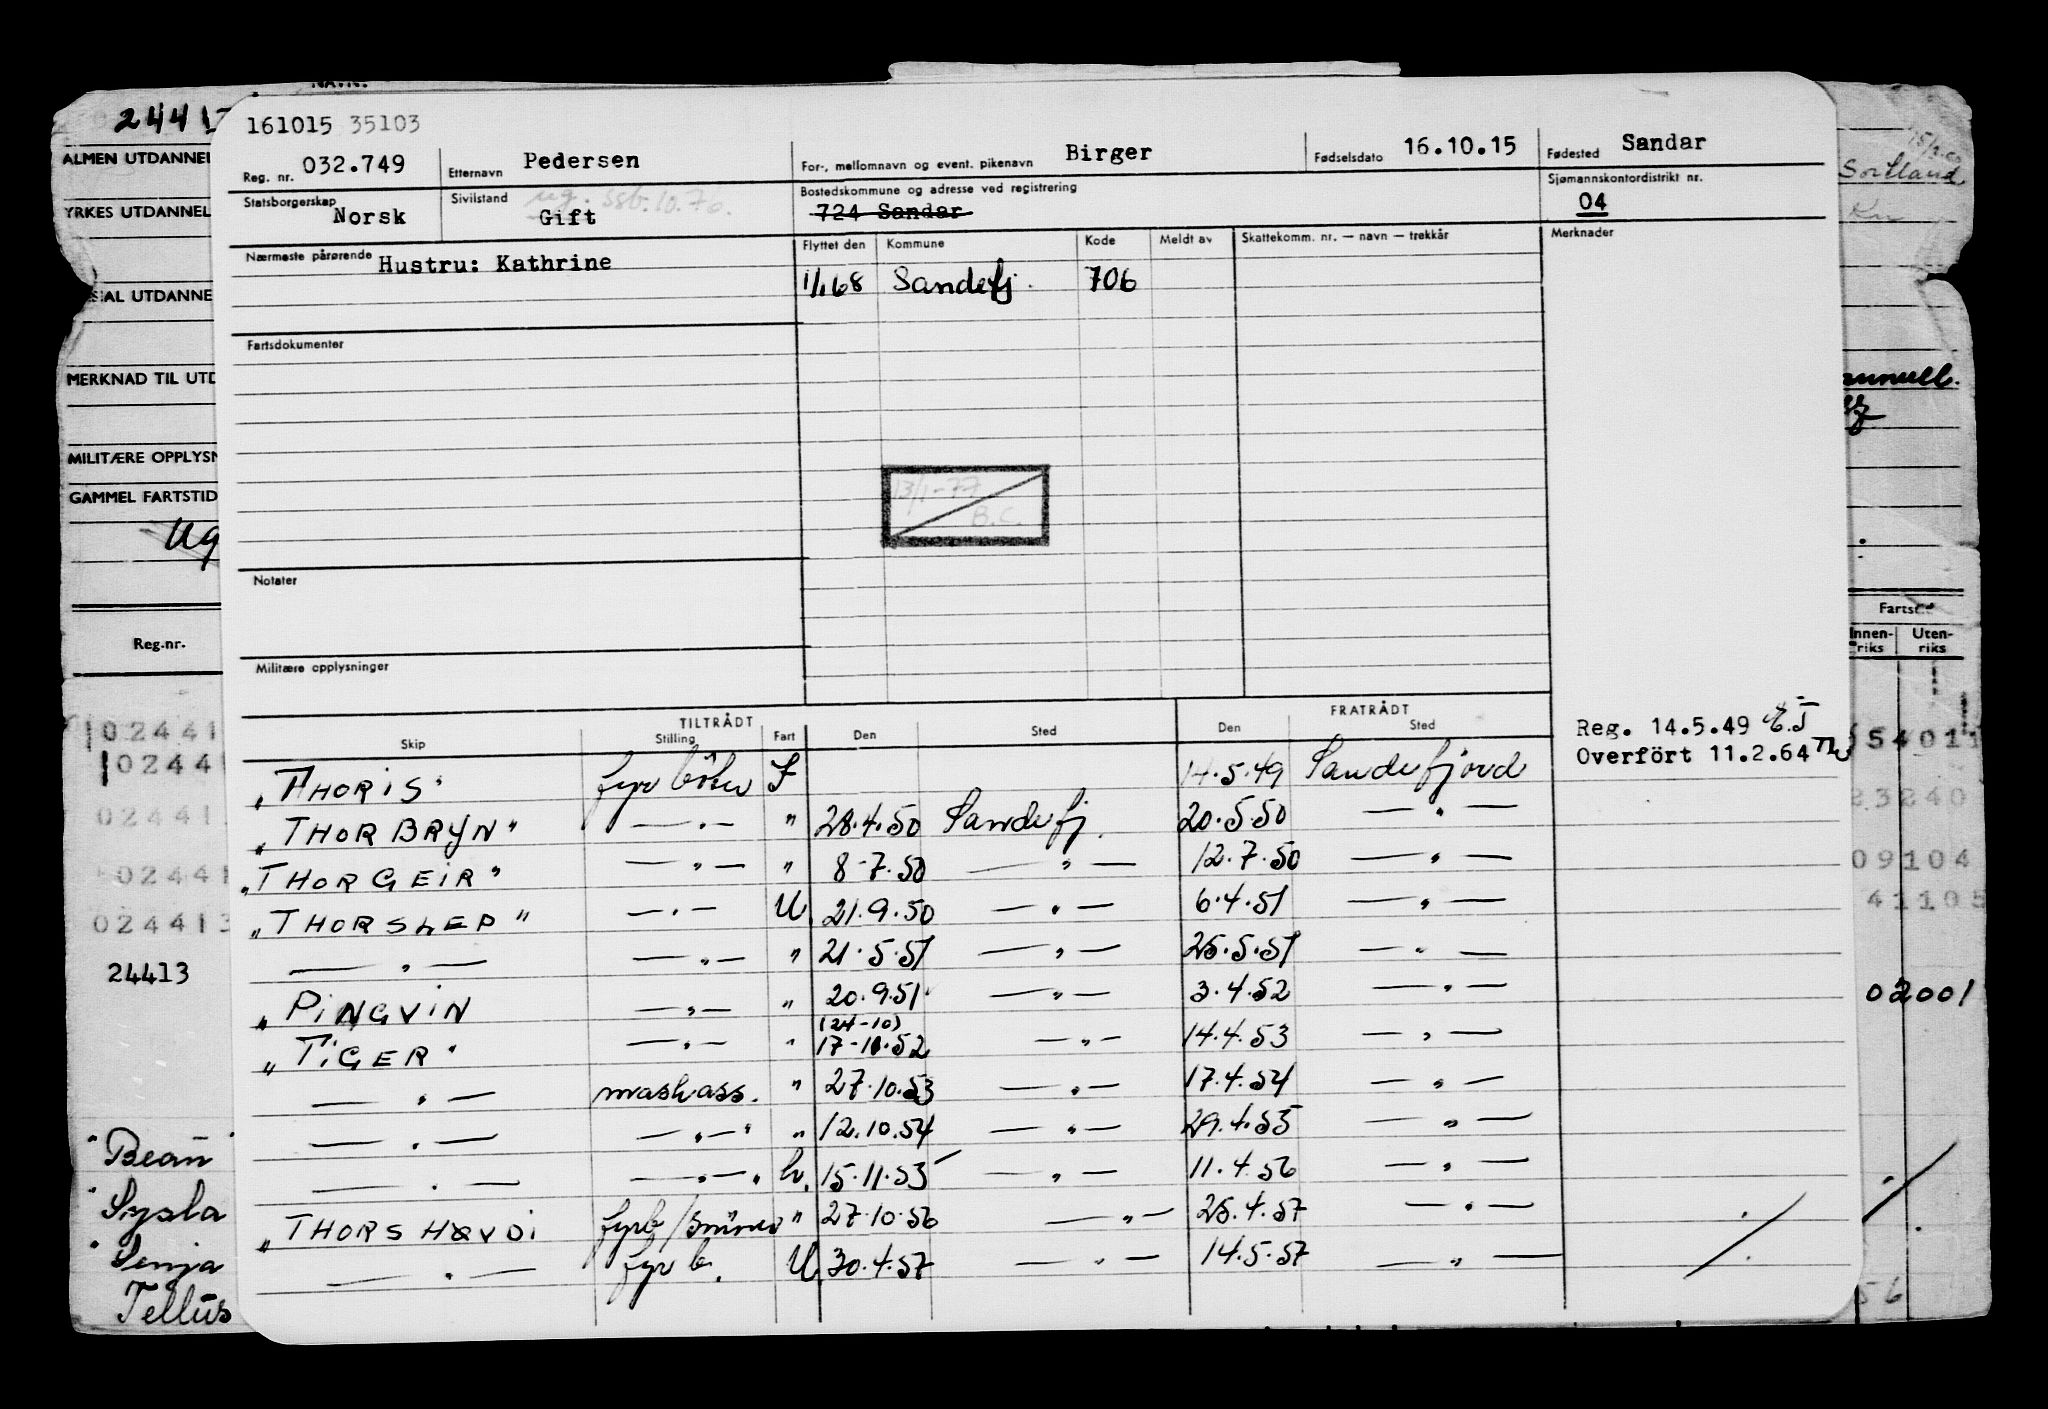 161015 35103
Reg. nr. 032.749 Etternavn Pedersen For-, mellomnavn og event. pikenavn Birger Fødselsdato 16.10.15 Fødested Sandar
Statsborgerskap Norsk Sivilstand Gift ug. ssb. 10.76. Bostedskommune og adresse ved registrering 724 Sandar Sjømannskontordistrikt nr. 04
Nærmeste pårørende Hustru: Kathrine Flyttet den Kommune Kode Meldt av Skattekomm. nr. — navn — trekkår Merknader
1/1 68 Sandefj. 706
Fartsdokumenter
13/1-77
B.C.
Notater
Militære opplysninger
TILTRÅDT FRATRÅDT
Skip Stilling Fart Den Sted Den Sted
Reg. 14.5.49
Overfört 11.2.64
"THORIS" fyrböter I 14.5.49 Sandefjord
"THORBRYN" — " — " 28.4.50 Sandefj. 20.5.50 — " —
"THORGEIR" — " — " 8-7.50 — " — 12.7.50 — " —
"THORSLEP" — " — U 21.9.50 — " — 6.4.51 — " —
— " — — " — " 21.5.51 — " — 25.5.51 — " —
"PiNGViN — " — " 20.9.51 — " — 3.4.52 — " —
(24-10)
"TiGER" — " — " 17-10.52 — " — 14.4.53 — " —
— " — maskass. " 27.10.53 — " — 17.4.54 — " —
— " — — " — " " 12.10.54 — " — 29.4.55 — " —
— " — — " — " h. 15.11.55 — " — 11.4.56 — " —
"THORSHØVDI fyrb/ " 27.10.56 — " — 25.4.57 — " —
— " — fyrb. U 30.4.57 — " — 14.5.57 — " —
ALMEN UTDANNEL
YRKES UTDANNEL
AL UTDANNE
MERKNAD TIL UTD
MILITÆRE OPPLYSN
GAMMEL FARTSTID
Ug
Reg.nr.
02441
02441
02441
02441
024413
24413
"Bean"
"Sysla
"Senja
Tellus
Sortland
Innen-riks Uten-riks
54011
23240
09104
41105
02001
56